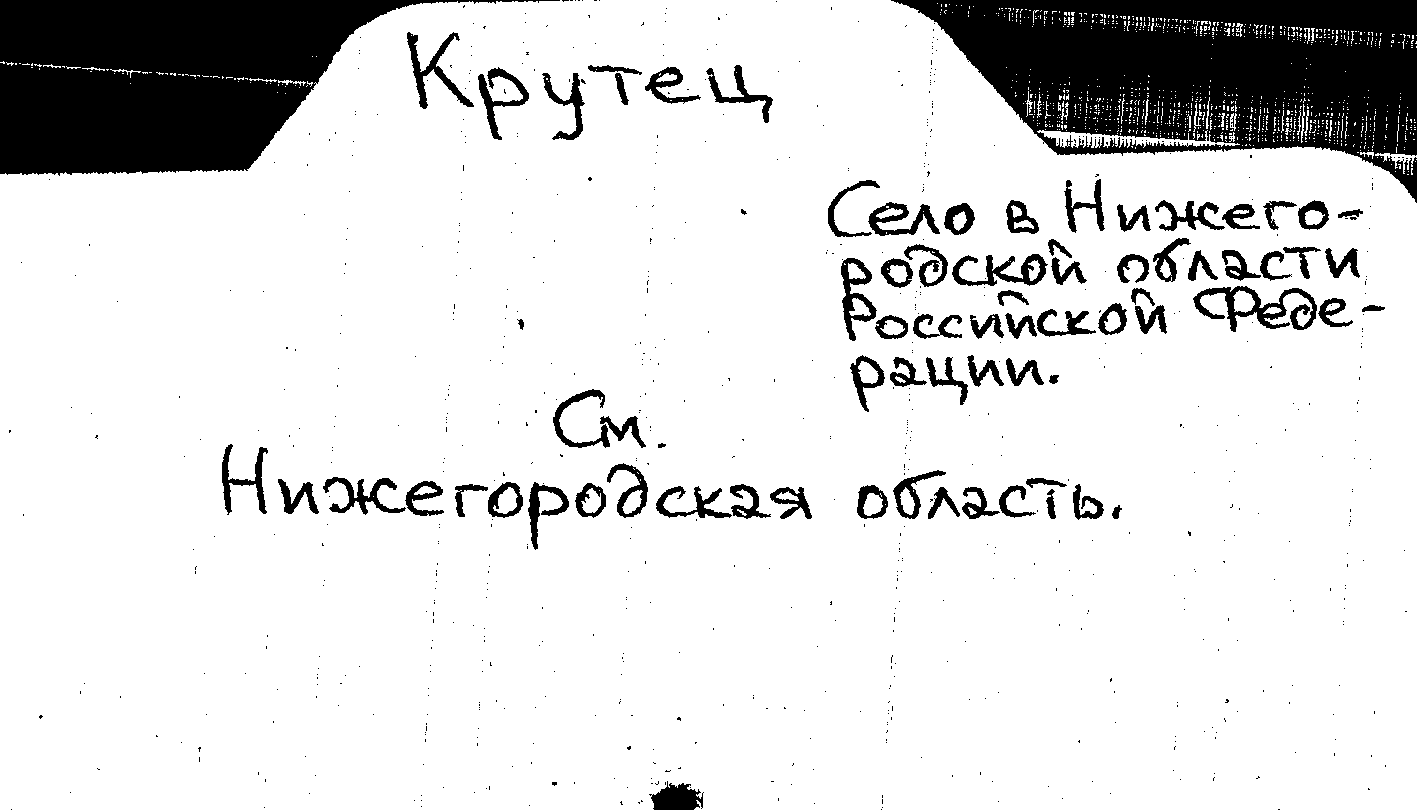 Крутец
Село в Нижего-
родской области
Российской Феде-
рации.
См.
Нижегородская область.